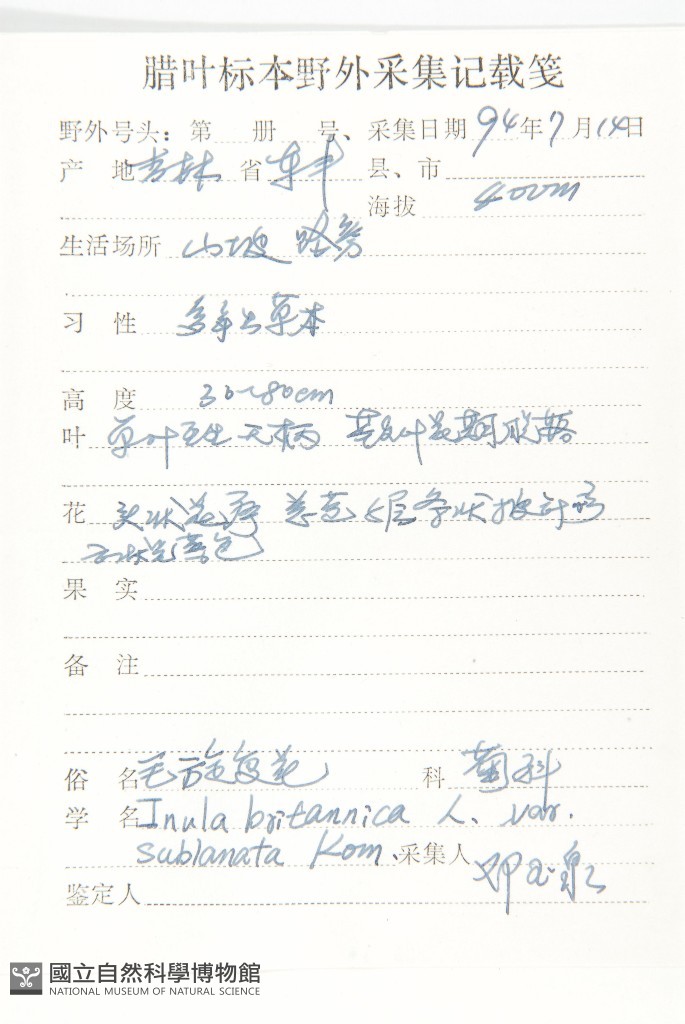 腊叶标本野外采集记载笺
野外号头：第 册 号、采集日期 94年7月14日
产 地 吉林 省 东丰 县、市
海拔 400m
生活场所 山坡 路旁
习 性 多年生草本
高 度 30~80cm
叶 单叶互生 无柄
花 头状花序 总苞5层条状披针形
舌状花黄色
果 实
备 注
俗 名 毛旋复花 科 菊科
学 名 Inula britannica L. var.
sublanata Kom. 采集人
鉴定人
國立自然科學博物館
NATIONAL MUSEUM OF NATURAL SCIENCE